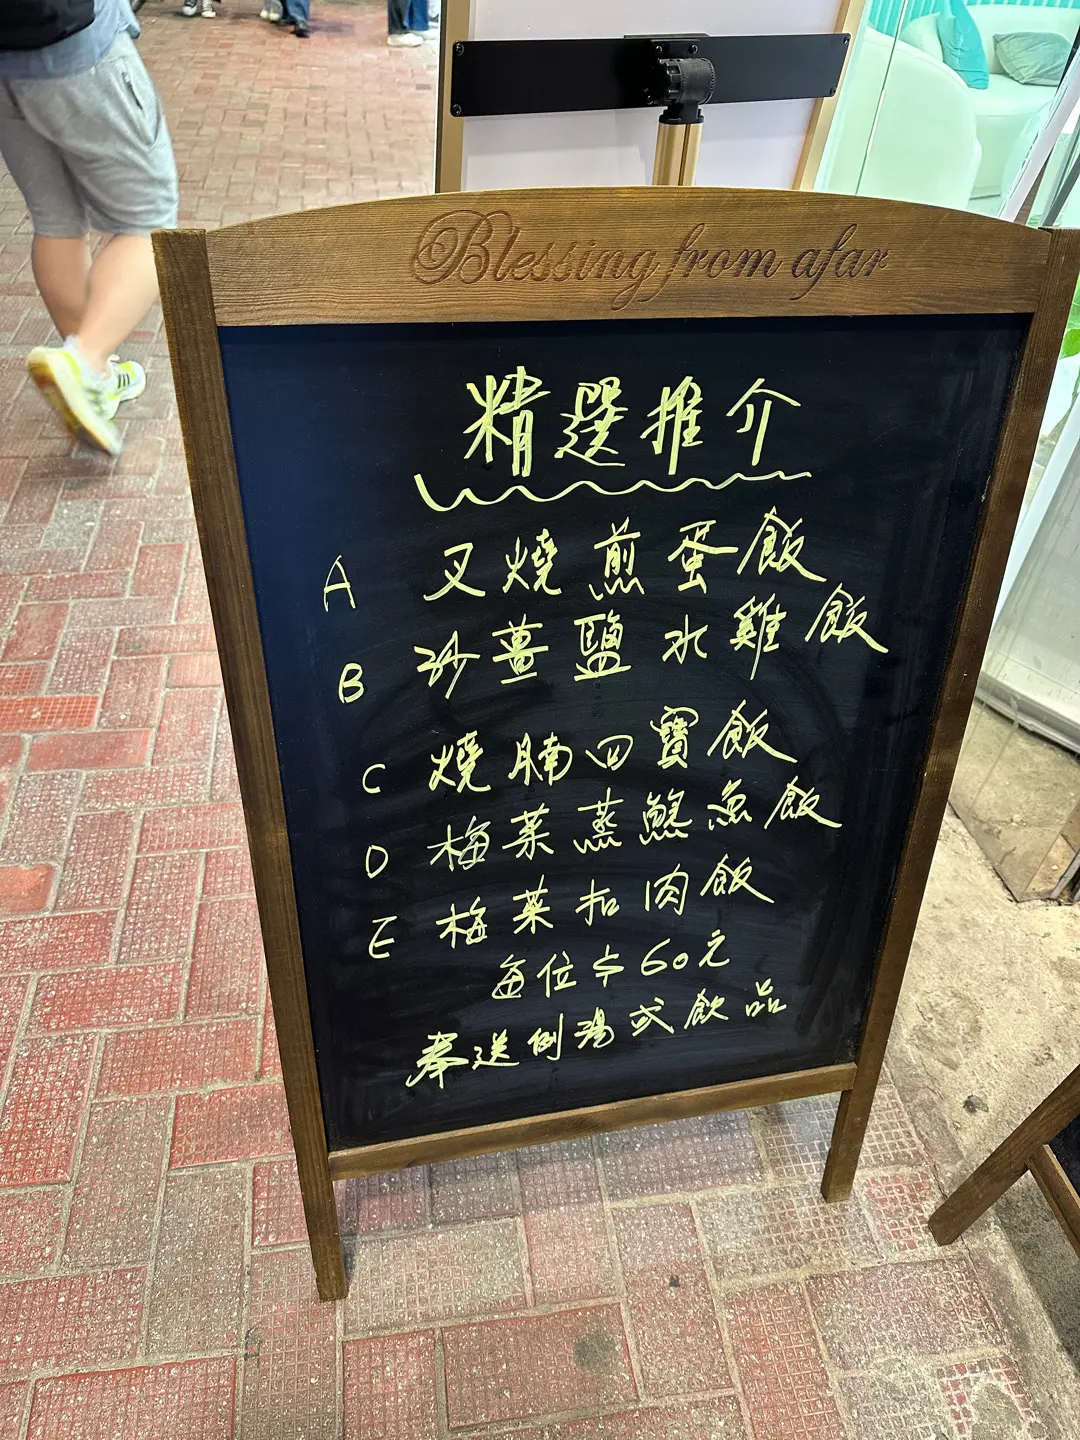 Blessing from afar
精選推介
A 叉燒煎蛋飯
B 沙薑鹽水雞飯
C 燒腩四寶飯
D 梅菜蒸鯇魚飯
E 梅菜扣肉飯
每位$60元
奉送例湯或飲品